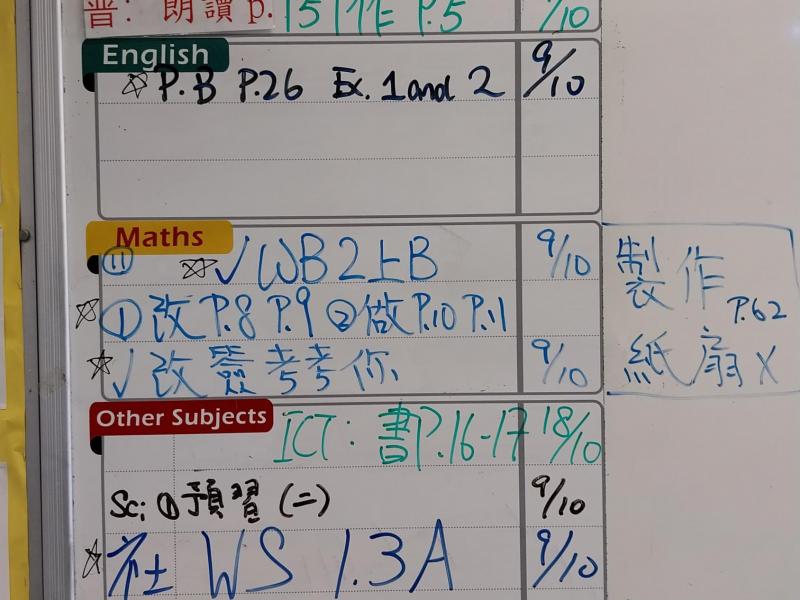 普: 朗讀 p. 15 作 P.5 /10
English
☆ P.B P.26 Ex. 1 and 2 9/10
Maths
⑪ ☆ ✓ WB2上B 9/10
☆ ① 改 P.8 P.9 ② 做 P.10 P.11
☆ ✓ 改 考考你 9/10
製作 P.62
紙扇 X
Other Subjects
ICT: 書P.16-17 18/10
Sc: ① 預習 (二) 9/10
☆ 社 WS 1.3A 9/10